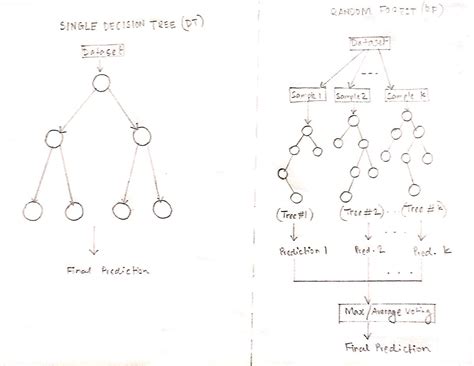 SINGLE DECISION TREE (DT)
Dataset
Final Prediction
RANDOM
Dataset
Sample 1 Sample 2 Sample k
(Tree #1) (Tree #2) ... (Tree # k)
Prediction 1 Pred. 2 Pred. k
Max/Average Voting
Final Prediction